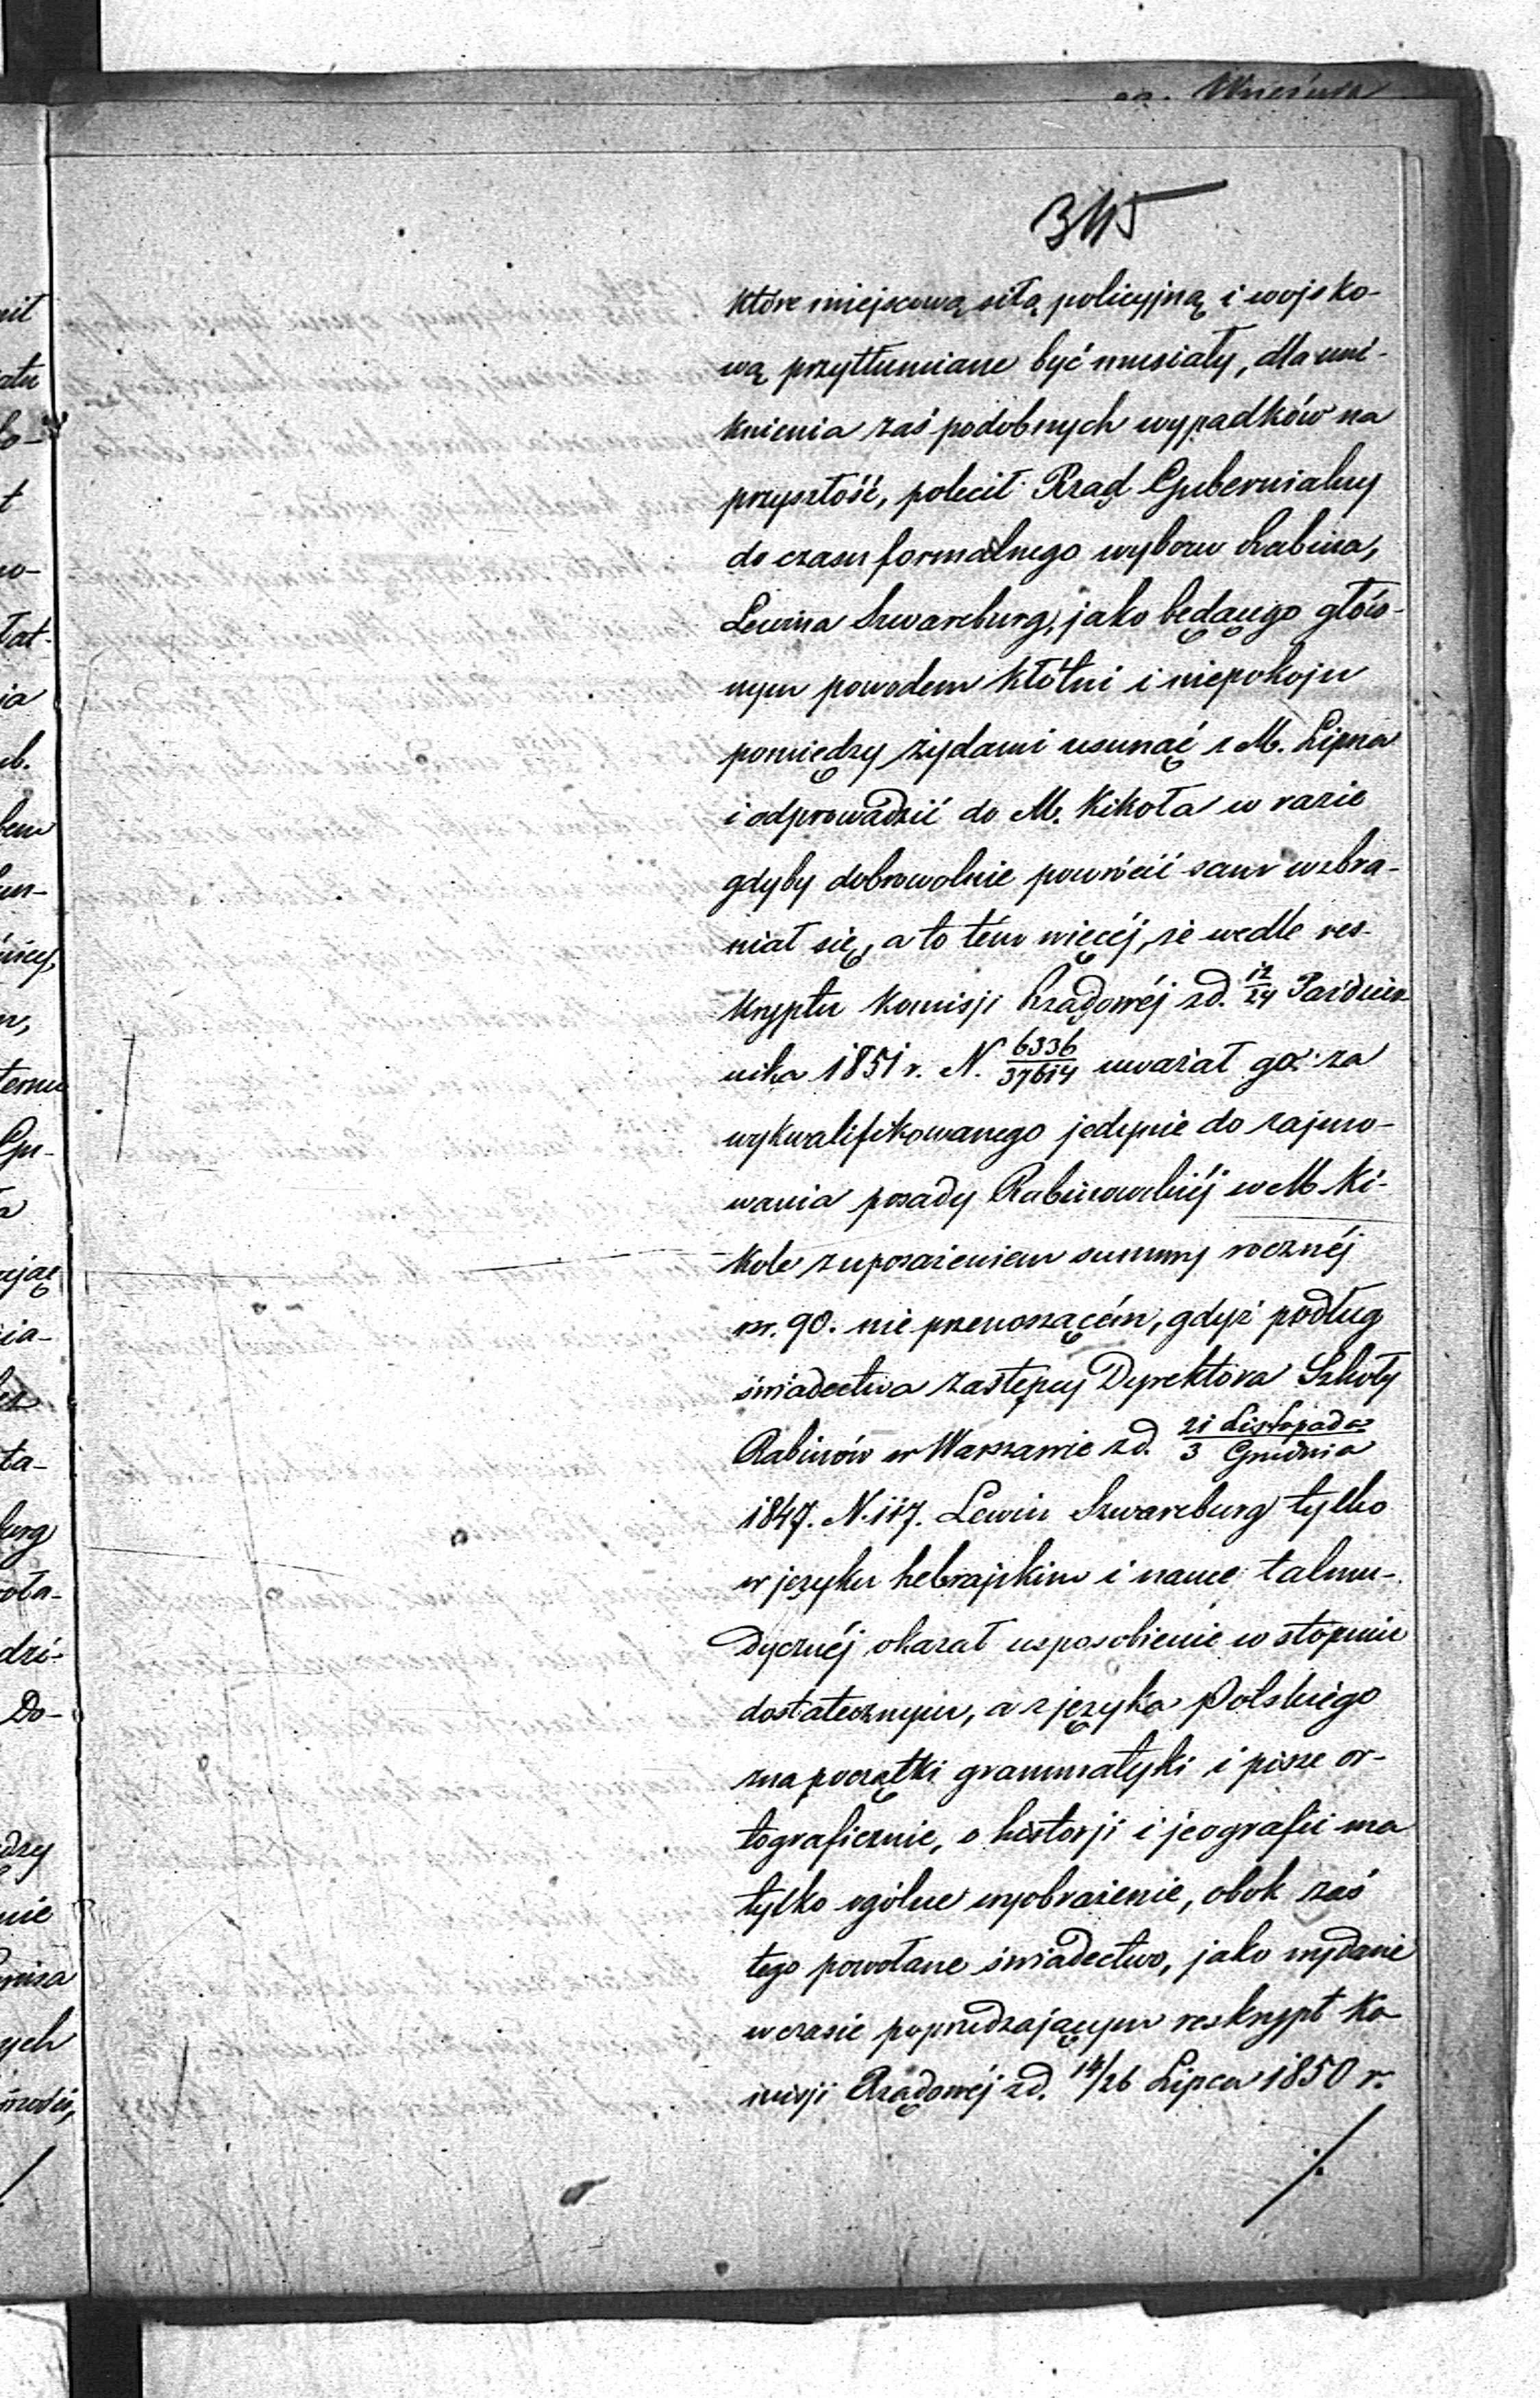 345
które miejscową siłą policyjną i wojsko-
wą przytłumiane być musiały, dla uni-
knienia zaś podobnych wypadków na
przyszłość, polecił Rząd Gubernialny
do czasu formalnego wyboru Rabina,
Lewina Szwarcburg, jako będącego głów-
nym powodem kłótni i niepokoju
pomiędzy żydami usunąć z M. Lipna
i odprowadzić do M. Kikoła w razie
gdyby dobrowolnie powrócić sam wzbra-
niał się, a to tém więcéj, że wedle res-
kryptu Komisji Rządowéj z d. 12/24 Paździer-
nika 1851 r. N. 6336/37614 uważał go za
wykwalifikowanego jedynie do zajmo-
wania posady Rabinowskiéj w M. Ki-
kole z uposażeniem summy rocznéj
rsr. 90. nie przenoszącém, gdyż podług
świadectwa zastępcy Dyrektora Szkoły
Rabinów w Warszawie z d. 21 Listopada/3 Grudnia
1847. N. 117. Lewin Szwarcburg tylko
w języku hebrajskim i nauce talmu-
dycznéj okazał usposobienie w stopniu
dostatecznym, a z języka Polskiego
zna początki grammatyki i pisze or-
tograficznie, o historji i jeografii ma
tylko ogólne wyobrażenie, obok zaś
tego powołane świadectwo, jako wydane
w czasie poprzedzającym reskrypt Ko-
misji Rządowéj z d. 14/26 Lipca 1850 r.
./.